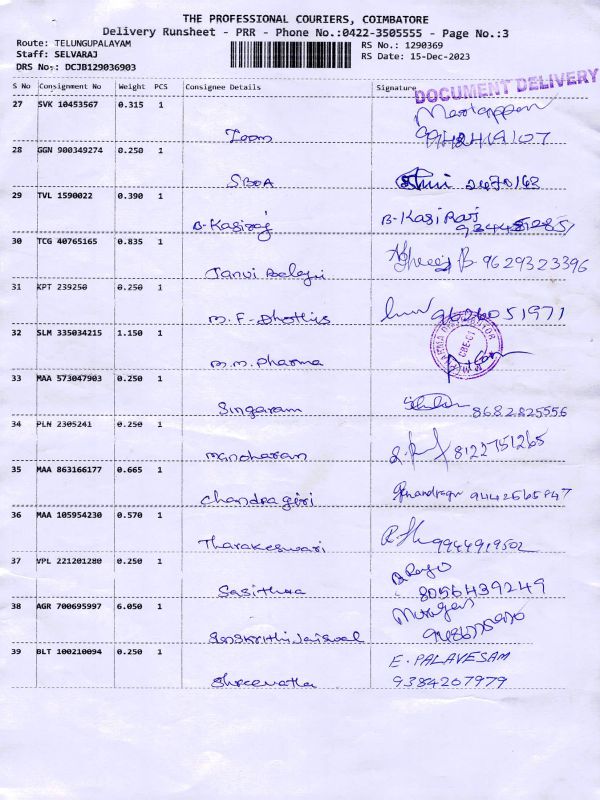 THE PROFESSIONAL COURIERS, COIMBATORE
Delivery Runsheet - PRR - Phone No.:0422-3505555 - Page No.:3
Route: TELUNGUPALAYAM
RS No.: 1290369
Staff: SELVARAJ
RS Date: 15-Dec-2023
DRS No.: DCJB129036903
S No Consignment No Weight PCS Consignee Details Signature
DOCUMENT DELIVERY
27 SVK 10453567 0.315 1
Zoom
28 GGN 900349274 0.250 1
SBOA 2470163
29 TVL 1590022 0.390 1
B-Kasiraj B-KasiRaj
30 TCG 40765165 0.835 1
Janvi Balaji 9629323396
31 KPT 239250 0.250 1
M.F. 9626051971
32 SLM 335034215 1.150 1
M.M. Pharma
33 MAA 573047903 0.250 1
Singaram 8682825556
34 PLN 2305241 0.250 1
Manoharam 8122751265
35 MAA 863166177 0.665 1
Chandragiri
36 MAA 105954230 0.570 1
Tharakeswari 9944919502
37 VPL 221201280 0.250 1
Sasithra 8056439249
38 AGR 700695997 6.050 1
Murugan
39 BLT 100210094 0.250 1
E. PALAVESAM
9384207979